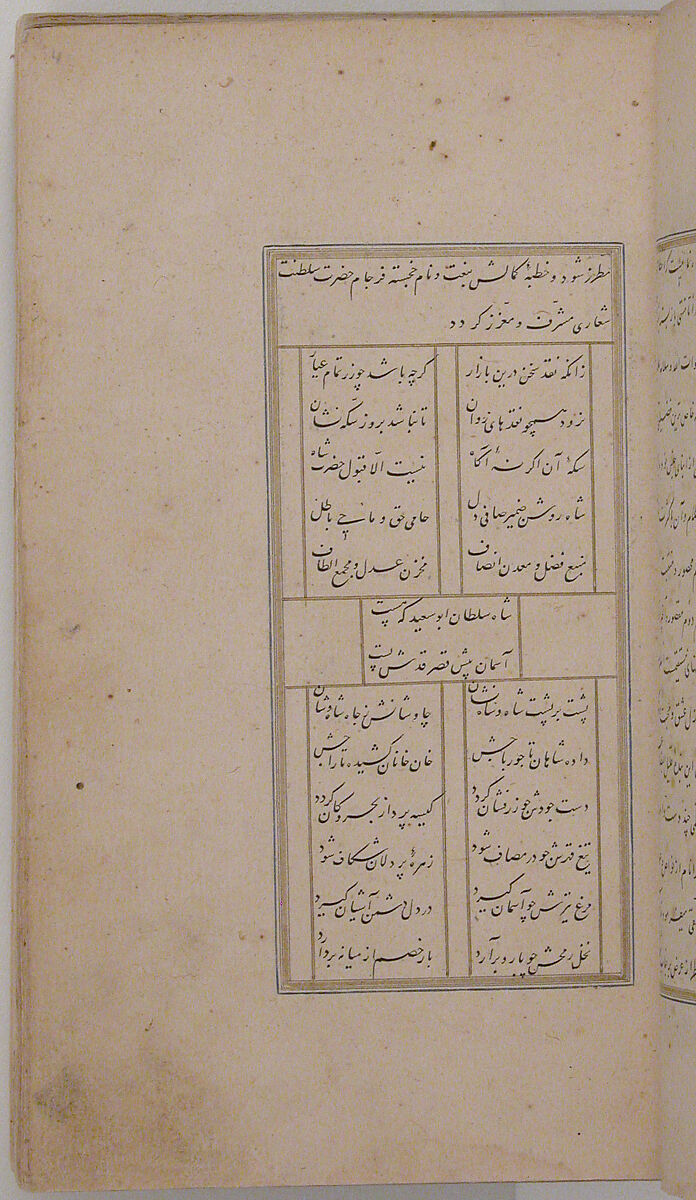 مطرز شود و خطبهٔ کمالش بنعت و نام خجسته فرجام حضرت سلطنت
شعاری مشرف و معزز کردد
زانکه نقد سخن درین بازار کرچه باشد چو زر تمام عیار
نرود همچو نقدهای روان تا نباشد برو ز سکه نشان
سکهٔ آن اکر نهٔ آکاه نیست الا قبول حضرت شاه
شاه روشن ضمیر صافی دل حامی حق و ماحی باطل
منبع فضل و معدن انصاف مخزن عدل و مجمع الطاف
شاه سلطان ابوسعید که هست
آسمان پیش قصر قدرش پست
پشت بر پشت شاه و شاه نشان چاوشانش ز جاه شاه وشان
داده شاهان تاجور باجش خان خانان کشیده تاراجش
دست جودش چو زرفشان کردد کیسه پرداز بحر و کان کردد
تیغ قدرش چو در مصاف شود زهرهٔ پردلان شکاف شود
مرغ تیرش چو آسمان کیرد در دل دشمن آشیان کیرد
نخل رمحش چو پا رو بر آرد بار خصم از میانه بردارد